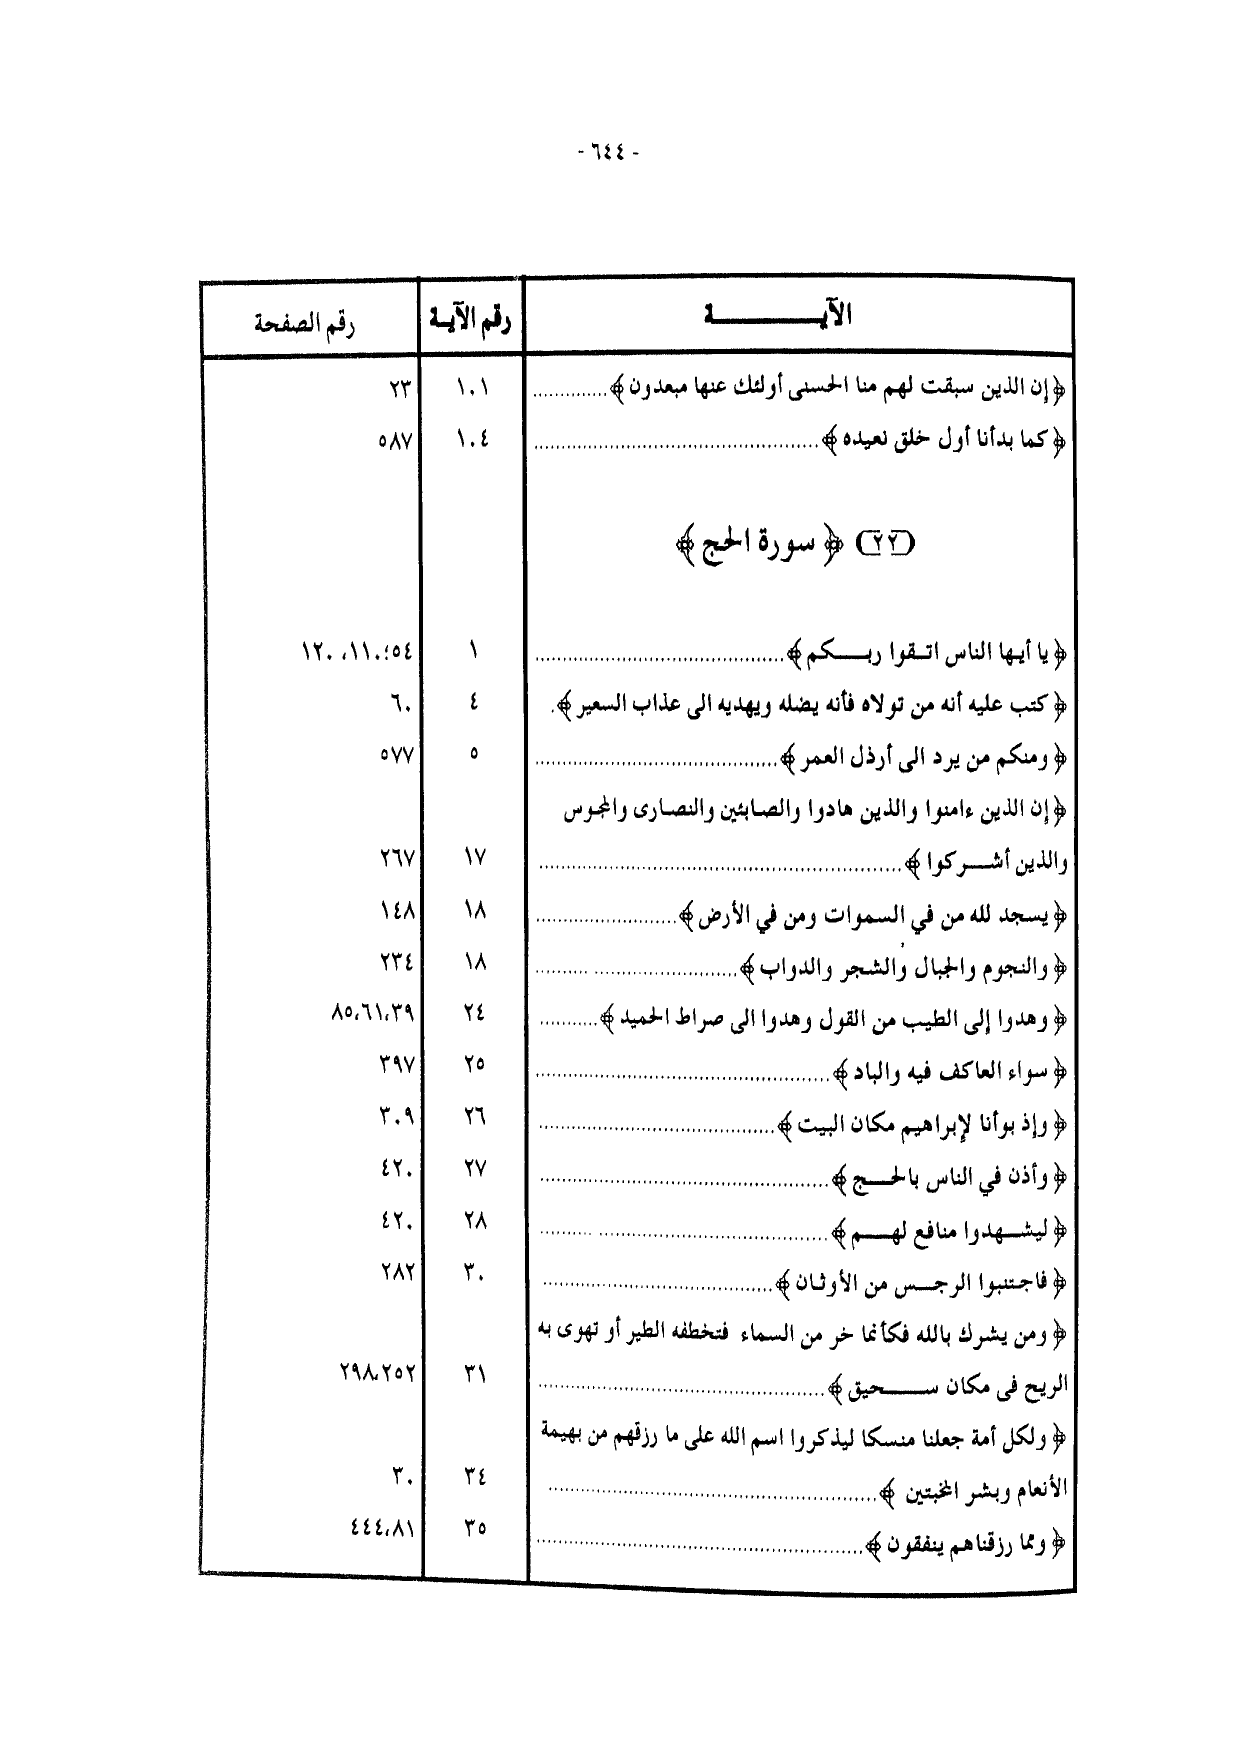 - ٦٤٤ -
الآيـــــــة رقم الآيـة رقم الصفحة
﴿ إن الذين سبقت لهم منا الحسنى أولئك عنها مبعدون ﴾.............. ١٠١ ٢٣
﴿ كما بدأنا أول خلق نعيده ﴾.................................................. ١٠٤ ٥٨٧
(٢٢) ﴿ سورة الحج ﴾
﴿ يا أيـها الناس اتـقوا ربـــكم ﴾........................................... ١ ٥٤،١١٠،١٢٠
﴿ كتب عليه أنه من تولاه فأنه يضله ويهديه الى عذاب السعير ﴾. ٤ ٦٠
﴿ ومنكم من يرد الى أرذل العمر ﴾.......................................... ٥ ٥٧٧
﴿ إن الذين ءامنوا والذين هادوا والصابئين والنصارى والمجوس
والذين أشـــركوا ﴾............................................................... ١٧ ٢٦٧
﴿ يسجد لله من في السموات ومن في الأرض ﴾......................... ١٨ ١٤٨
﴿ والنجوم والجبال والشجر والدواب ﴾................................... ١٨ ٢٣٤
﴿ وهدوا إلى الطيب من القول وهدوا الى صراط الحميد ﴾........... ٢٤ ٣٩،٦١،٨٥
﴿ سواء العاكف فيه والباد ﴾................................................... ٢٥ ٣٩٧
﴿ وإذ بوأنا لإبراهيم مكان البيت ﴾......................................... ٢٦ ٣٠٩
﴿ وأذن في الناس بالحـــج ﴾................................................... ٢٧ ٤٢٠
﴿ ليشـــهدوا منافع لهـــم ﴾.................................................. ٢٨ ٤٢٠
﴿ فاجتنبوا الرجـــس من الأوثان ﴾........................................ ٣٠ ٢٨٢
﴿ ومن يشرك بالله فكأنما خر من السماء فتخطفه الطير أو تهوى به
الريح فى مكان ســـــحيق ﴾.................................................. ٣١ ٢٥٢،٢٩٨
﴿ ولكل أمة جعلنا منسكا ليذكروا اسم الله على ما رزقهم من بهيمة
الأنعام وبشر المخبتين ﴾......................................................... ٣٤ ٣٠
﴿ ومما رزقناهم ينفقون ﴾......................................................... ٣٥ ٨١،٤٤٤